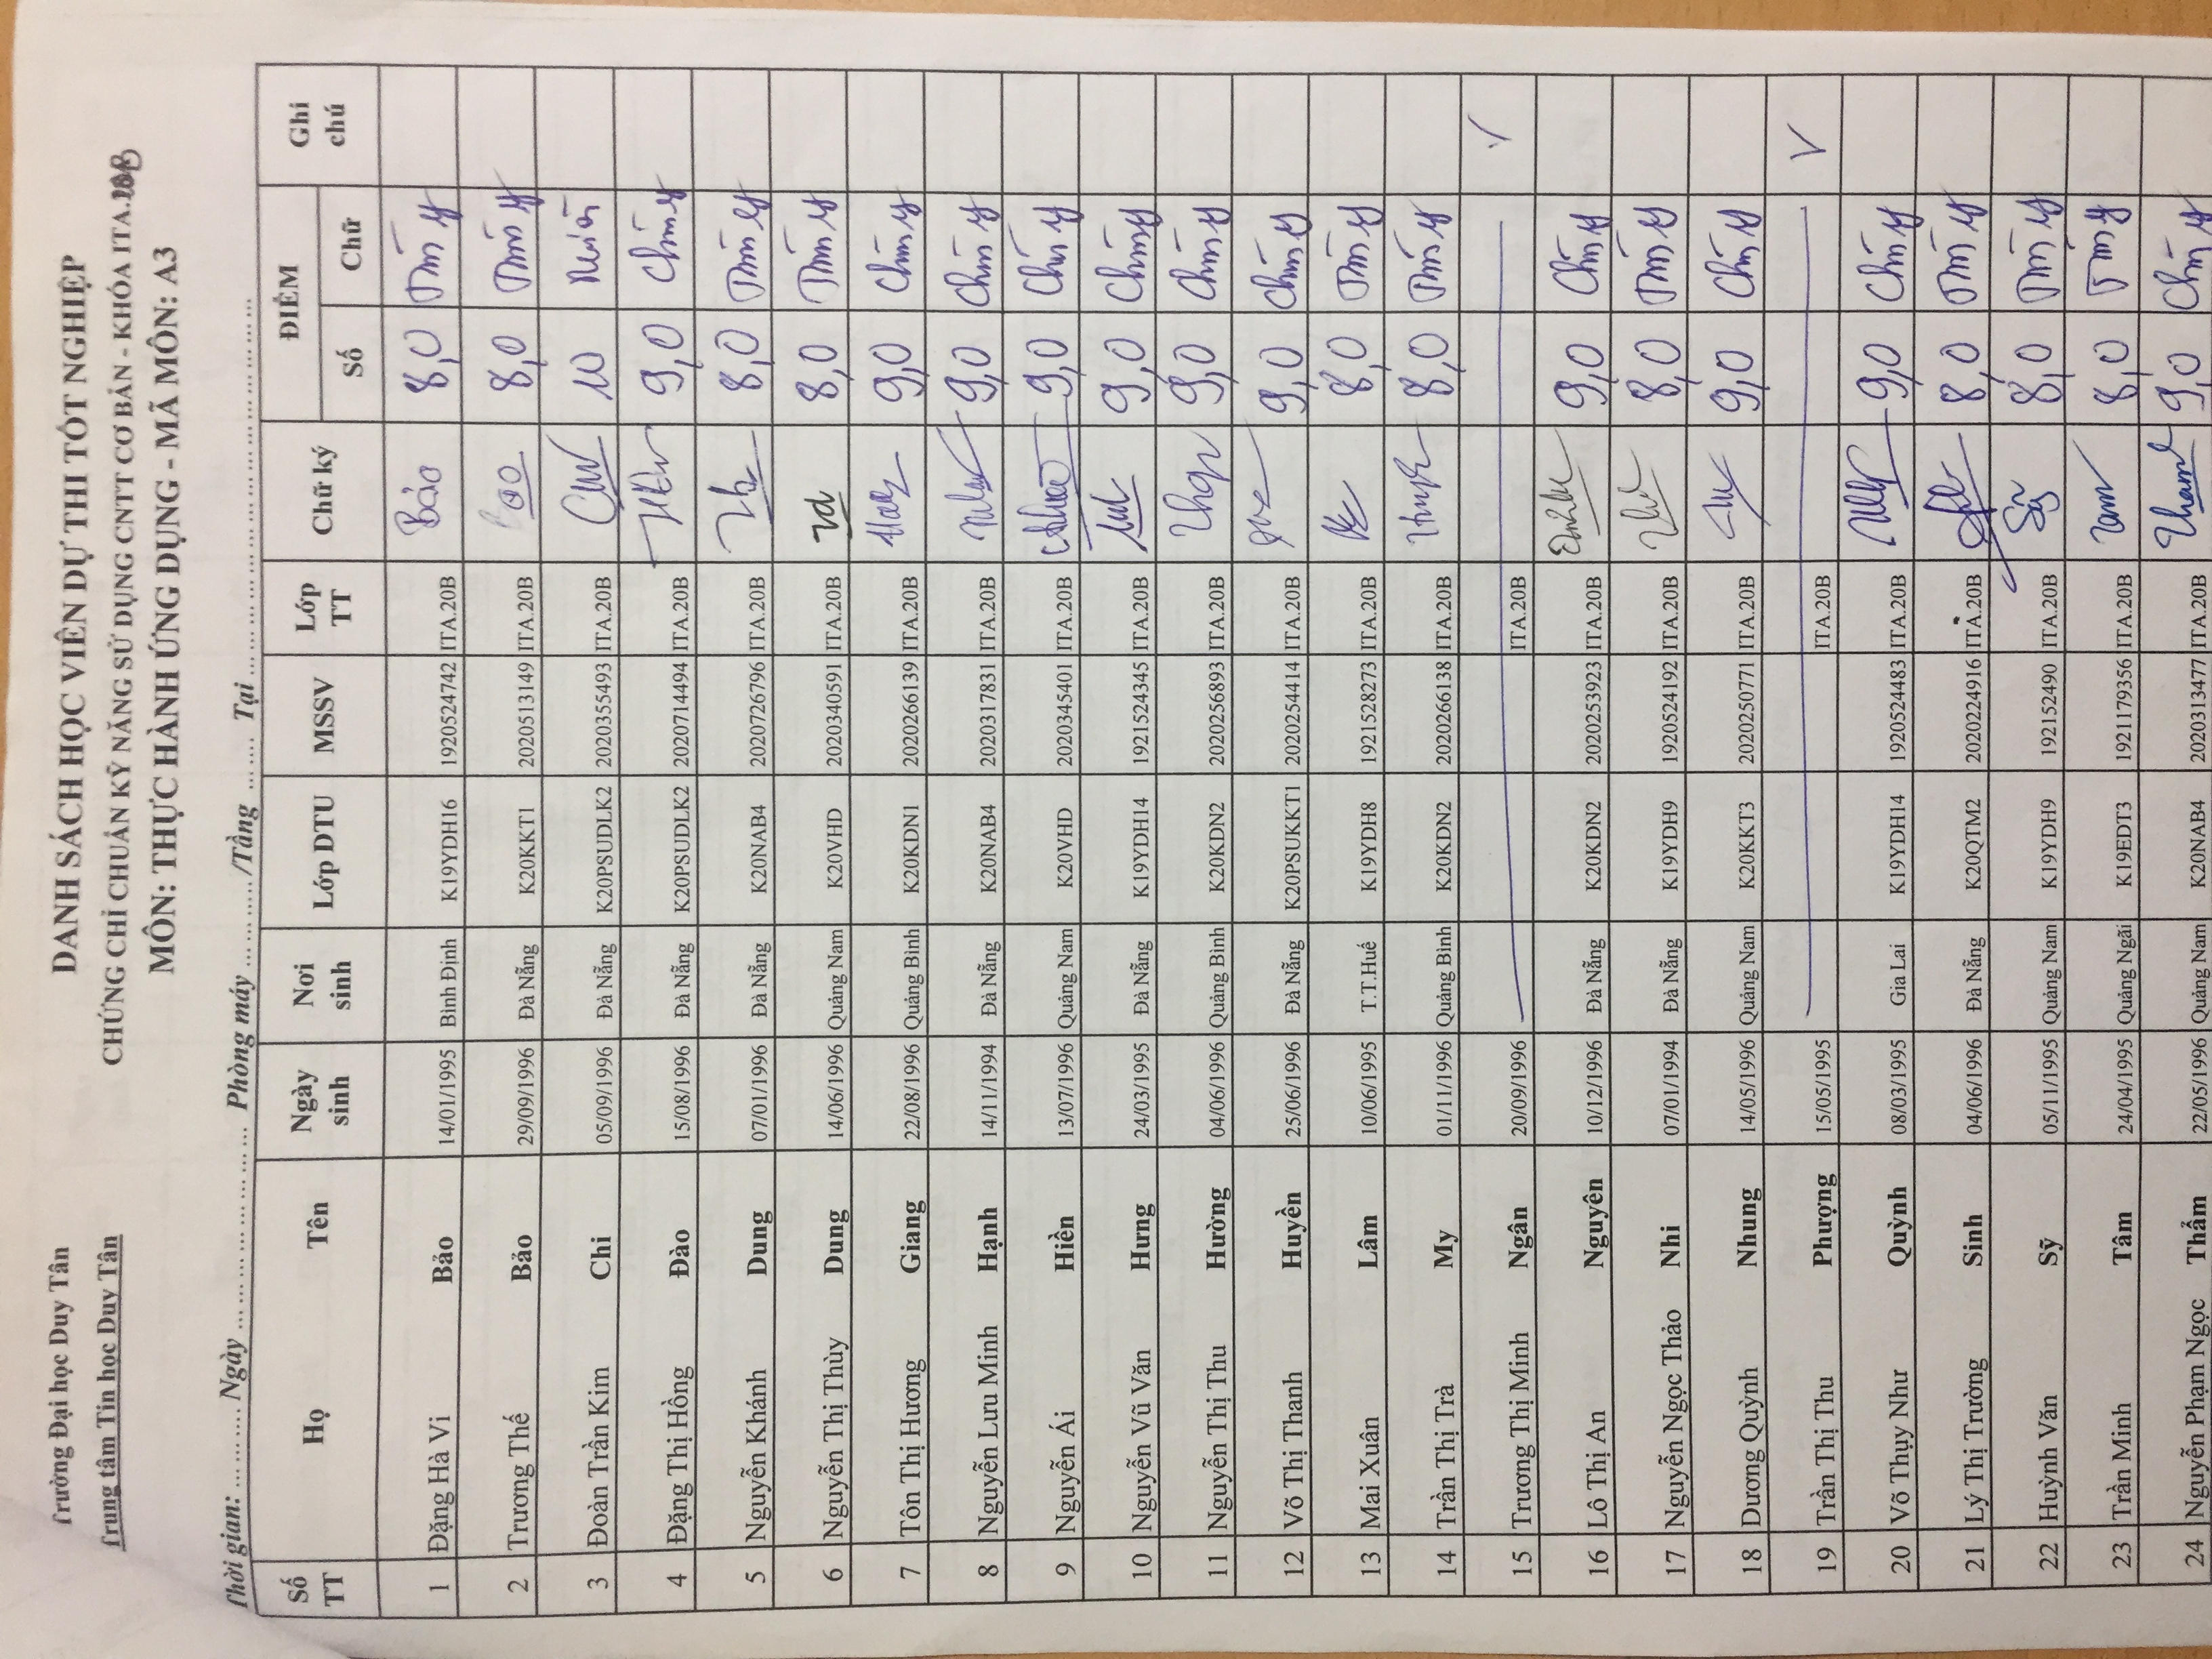 Trường Đại học Duy Tân
Trung tâm Tin học Duy Tân
DANH SÁCH HỌC VIÊN DỰ THI TỐT NGHIỆP
CHỨNG CHỈ CHUẨN KỸ NĂNG SỬ DỤNG CNTT CƠ BẢN - KHÓA ITA.20B
MÔN: THỰC HÀNH ỨNG DỤNG - MÃ MÔN: A3
Thời gian: ............ Ngày ............ Phòng máy ............ /Tầng ...... Tại ............
Số TT Họ Tên Ngày sinh Nơi sinh Lớp DTU MSSV Lớp TT Chữ ký ĐIỂM Số Chữ Ghi chú
1 Đặng Hà Vi Bảo 14/01/1995 Bình Định K19YDH16 1920524742 ITA.20B Bảo 8,0 Tám
2 Trương Thế Bảo 29/09/1996 Đà Nẵng K20KKT1 2020513149 ITA.20B 8,0 Tám
3 Đoàn Trần Kim Chi 05/09/1996 Đà Nẵng K20PSUDLK2 2020355493 ITA.20B 10 Mười
4 Đặng Thị Hồng Đào 15/08/1996 Đà Nẵng K20PSUDLK2 2020714494 ITA.20B 9,0 Chín
5 Nguyễn Khánh Dung 07/01/1996 Đà Nẵng K20NAB4 2020726796 ITA.20B 8,0 Tám
6 Nguyễn Thị Thùy Dung 14/06/1996 Quảng Nam K20VHD 2020340591 ITA.20B 8,0 Tám
7 Tôn Thị Hương Giang 22/08/1996 Quảng Bình K20KDN1 2020266139 ITA.20B 9,0 Chín
8 Nguyễn Lưu Minh Hạnh 14/11/1994 Đà Nẵng K20NAB4 2020317831 ITA.20B 9,0 Chín
9 Nguyễn Ái Hiền 13/07/1996 Quảng Nam K20VHD 2020345401 ITA.20B 9,0 Chín
10 Nguyễn Vũ Văn Hưng 24/03/1995 Đà Nẵng K19YDH14 1921524345 ITA.20B 9,0 Chín
11 Nguyễn Thị Thu Hường 04/06/1996 Quảng Bình K20KDN2 2020256893 ITA.20B 9,0 Chín
12 Võ Thị Thanh Huyền 25/06/1996 Đà Nẵng K20PSUKKT1 2020254414 ITA.20B 9,0 Chín
13 Mai Xuân Lâm 10/06/1995 T.T.Huế K19YDH8 1921528273 ITA.20B 8,0 Tám
14 Trần Thị Trà My 01/11/1996 Quảng Bình K20KDN2 2020266138 ITA.20B 8,0 Tám
15 Trương Thị Minh Ngân 20/09/1996 ITA.20B V
16 Lô Thị An Nguyên 10/12/1996 Đà Nẵng K20KDN2 2020253923 ITA.20B 9,0 Chín
17 Nguyễn Ngọc Thảo Nhi 07/01/1994 Đà Nẵng K19YDH9 1920524192 ITA.20B 8,0 Tám
18 Dương Quỳnh Nhung 14/05/1996 Quảng Nam K20KKT3 2020250771 ITA.20B 9,0 Chín
19 Trần Thị Thu Phượng 15/05/1995 ITA.20B V
20 Võ Thụy Như Quỳnh 08/03/1995 Gia Lai K19YDH14 1920524483 ITA.20B 9,0 Chín
21 Lý Thị Trường Sinh 04/06/1996 Đà Nẵng K20QTM2 2020224916 ITA.20B 8,0 Tám
22 Huỳnh Văn Sỹ 05/11/1995 Quảng Nam K19YDH9 192152490 ITA.20B Sỹ 8,0 Tám
23 Trần Minh Tâm 24/04/1995 Quảng Ngãi K19EDT3 1921179356 ITA.20B Tâm 8,0 Tám
24 Nguyễn Phạm Ngọc Thẩm 22/05/1996 Quảng Nam K20NAB4 2020313477 ITA.20B 9,0 Chín